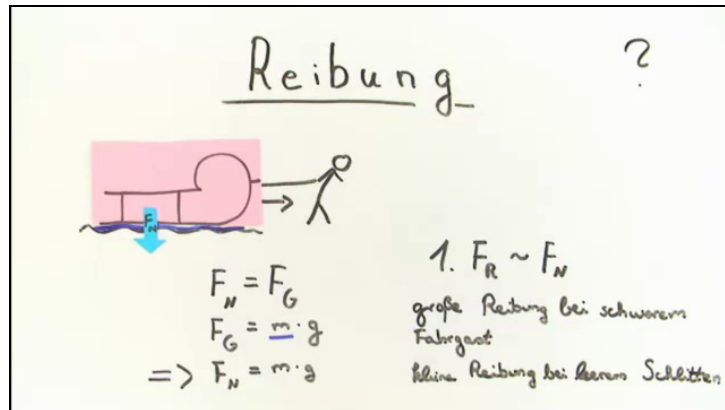 Reibung
?
F_N
F_N = F_G
F_G = m · g
=> F_N = m · g
1. F_R ~ F_N
große Reibung bei schwerem
Fahrgast
kleine Reibung bei leerem Schlitten